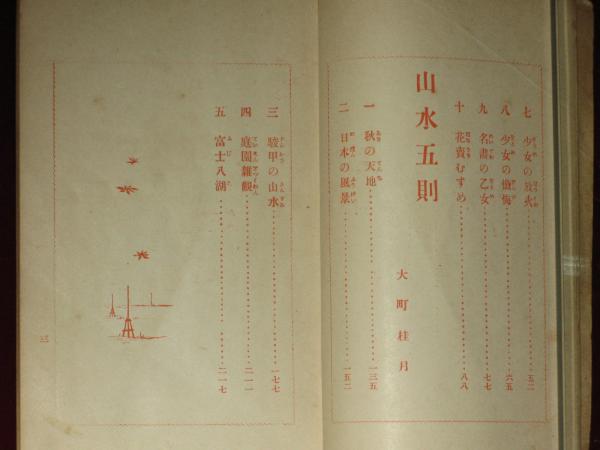 七 少女の放火 五二
八 少女の懺悔 六五
九 名畵の乙女 七七
十 花賣むすめ 八八
山水五則
大町桂月
一 秋の天地 一三五
二 日本の風景 一五二
三 駿甲の山水 一七七
四 庭園雜觀 二一一
五 富士八湖 二一七
三